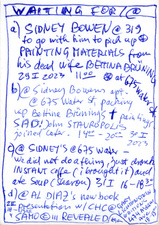 WAITING FOR / @
a) @ SIDNEY BOWEN @ 319
to go with him to pick up @
PAINTING MATERIALS from
his dead wife BETTINA BRÜNING
29 I 2023 11 00 @ at 675 water
b) @ Sidney Bowens apt.
@ 675 Water St, packing
up Bettina Brünings paintings
SADJ. Jim STAUROPOLIS
joined later. 14
2023
c) @ SIDNEY'S @ 675 water
we did not do a thing, just drank
INSTANT coffee (I brought it) and
ate Soup (Sharon) 3/I 16-18
d) @ AL DIAZ's new book
Presentation w/ CHC @
SAHO @ in REVEALED